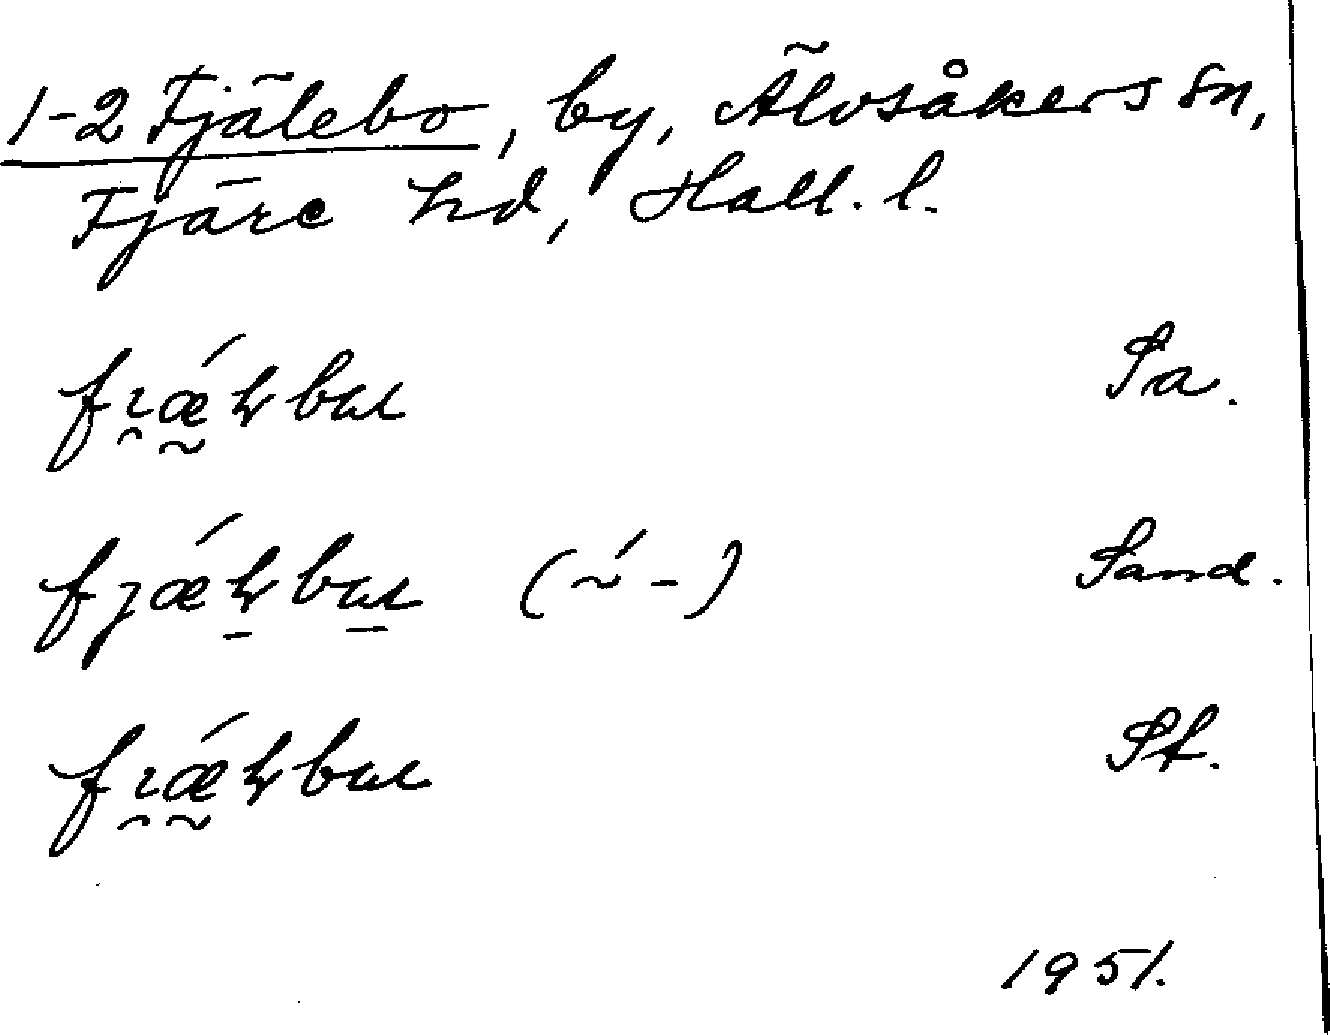 1-2 Fjälebo, by, Älvsåkers sn,
Fjäre hd, Hall. l.
fɩ̯ǽɫbɯ Sa.
fjǽɫbɯ (~́ -) Sand.
fɩ̯ǽɫbɯ St.
1951.